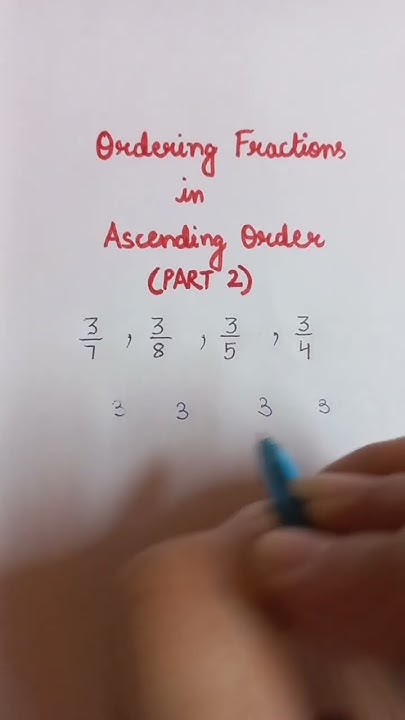 Ordering Fractions
in
Ascending Order
(PART 2)
3/7 , 3/8 , 3/5 , 3/4
3 3 3 3